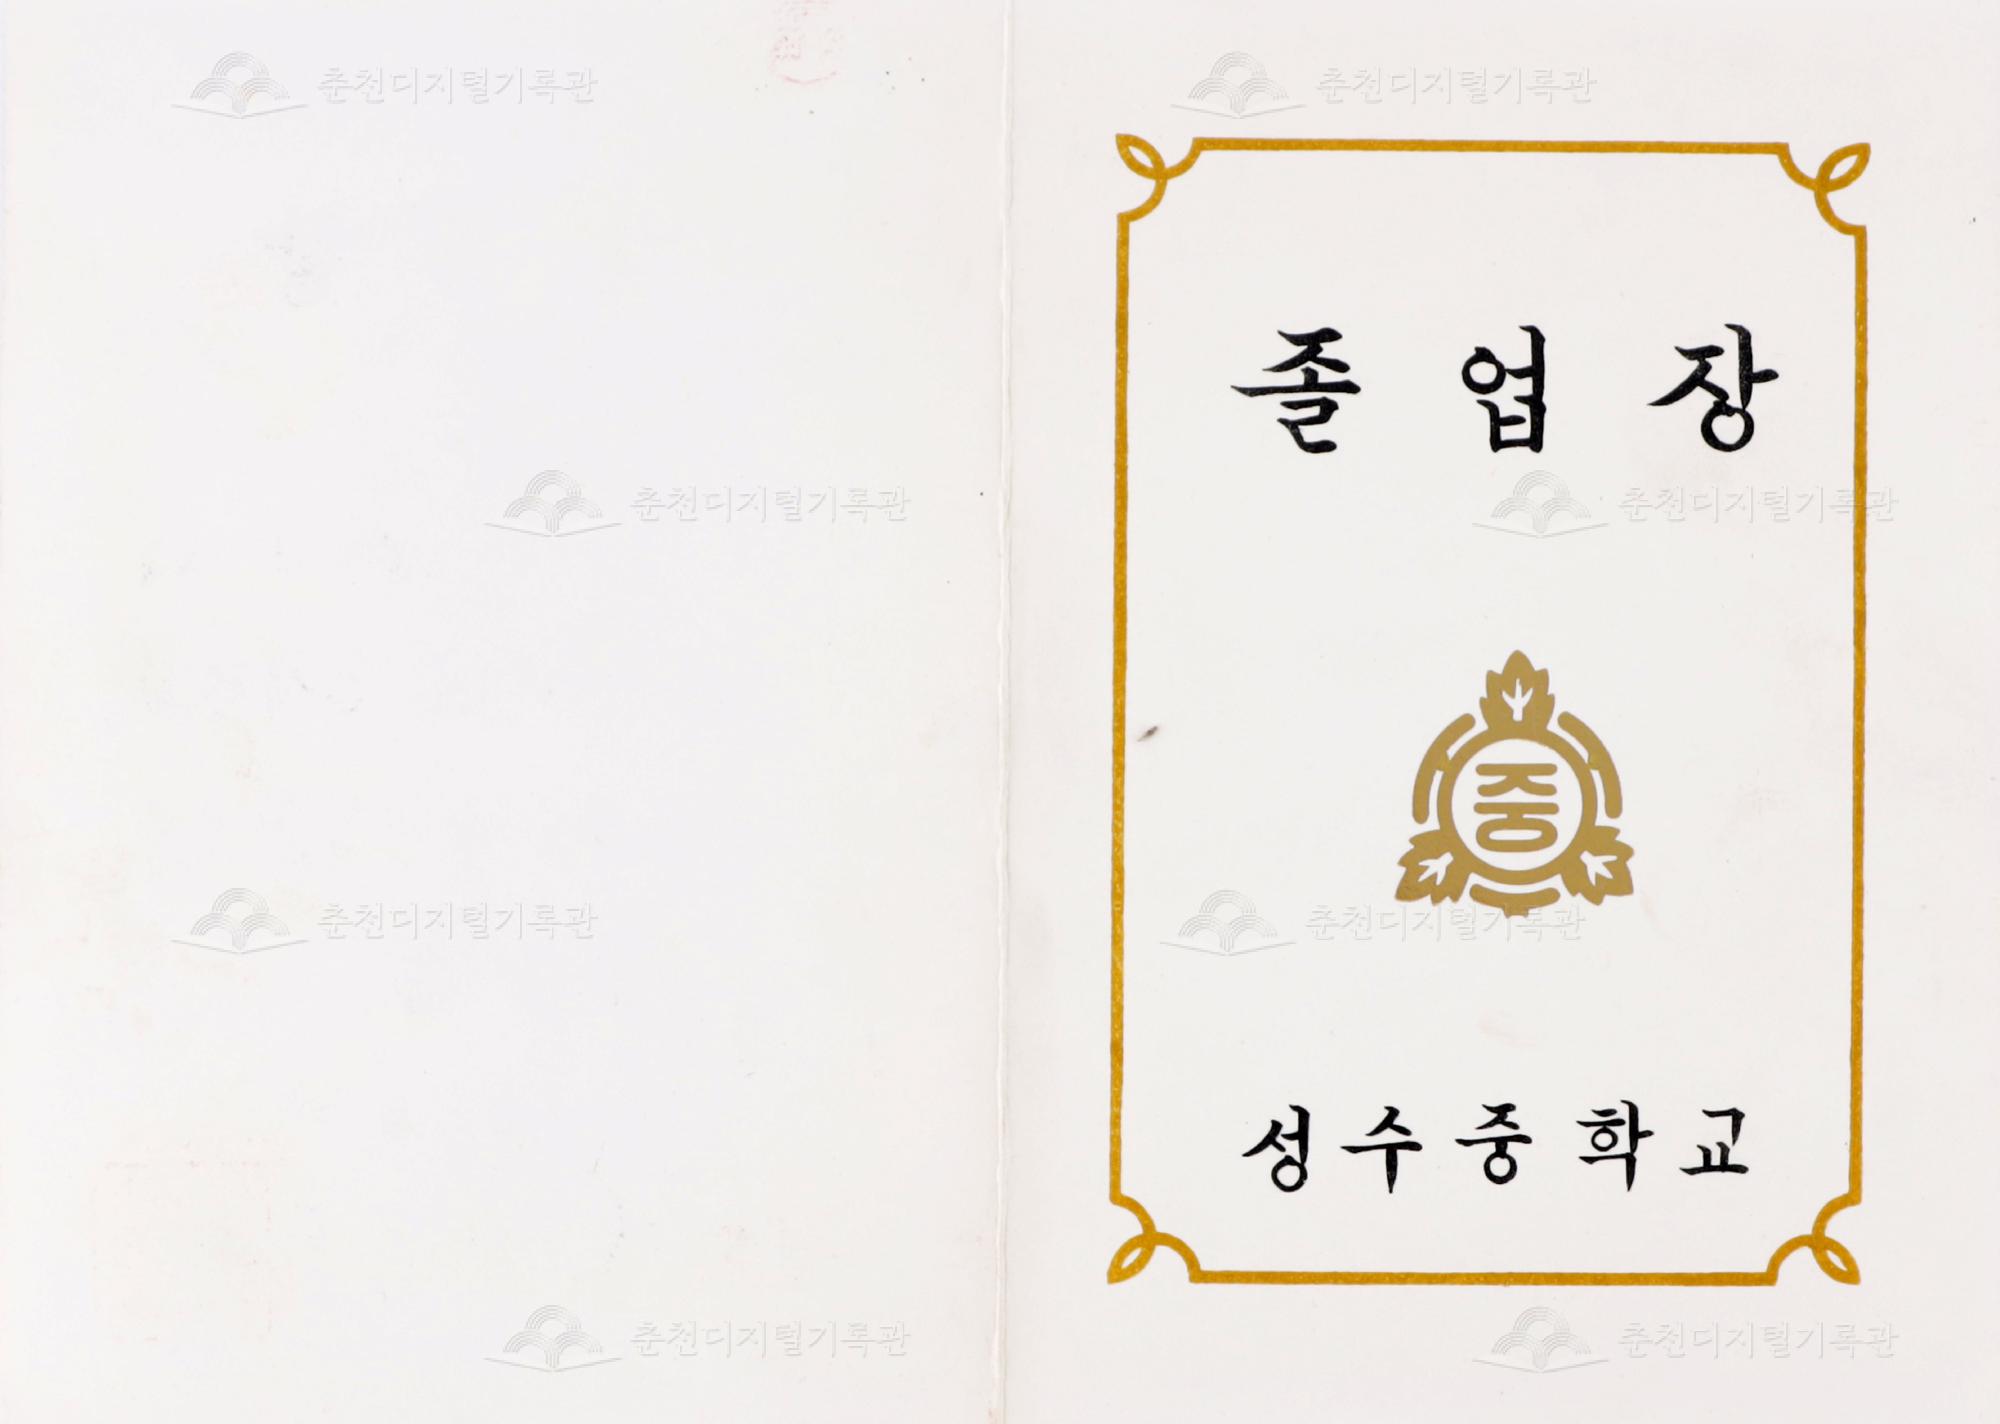 춘천디지털기록관
춘천디지털기록관
졸업장
춘천디지털기록관
춘천디지털기록관
중
춘천디지털기록관
춘천디지털기록관
성수중학교
춘천디지털기록관
춘천디지털기록관